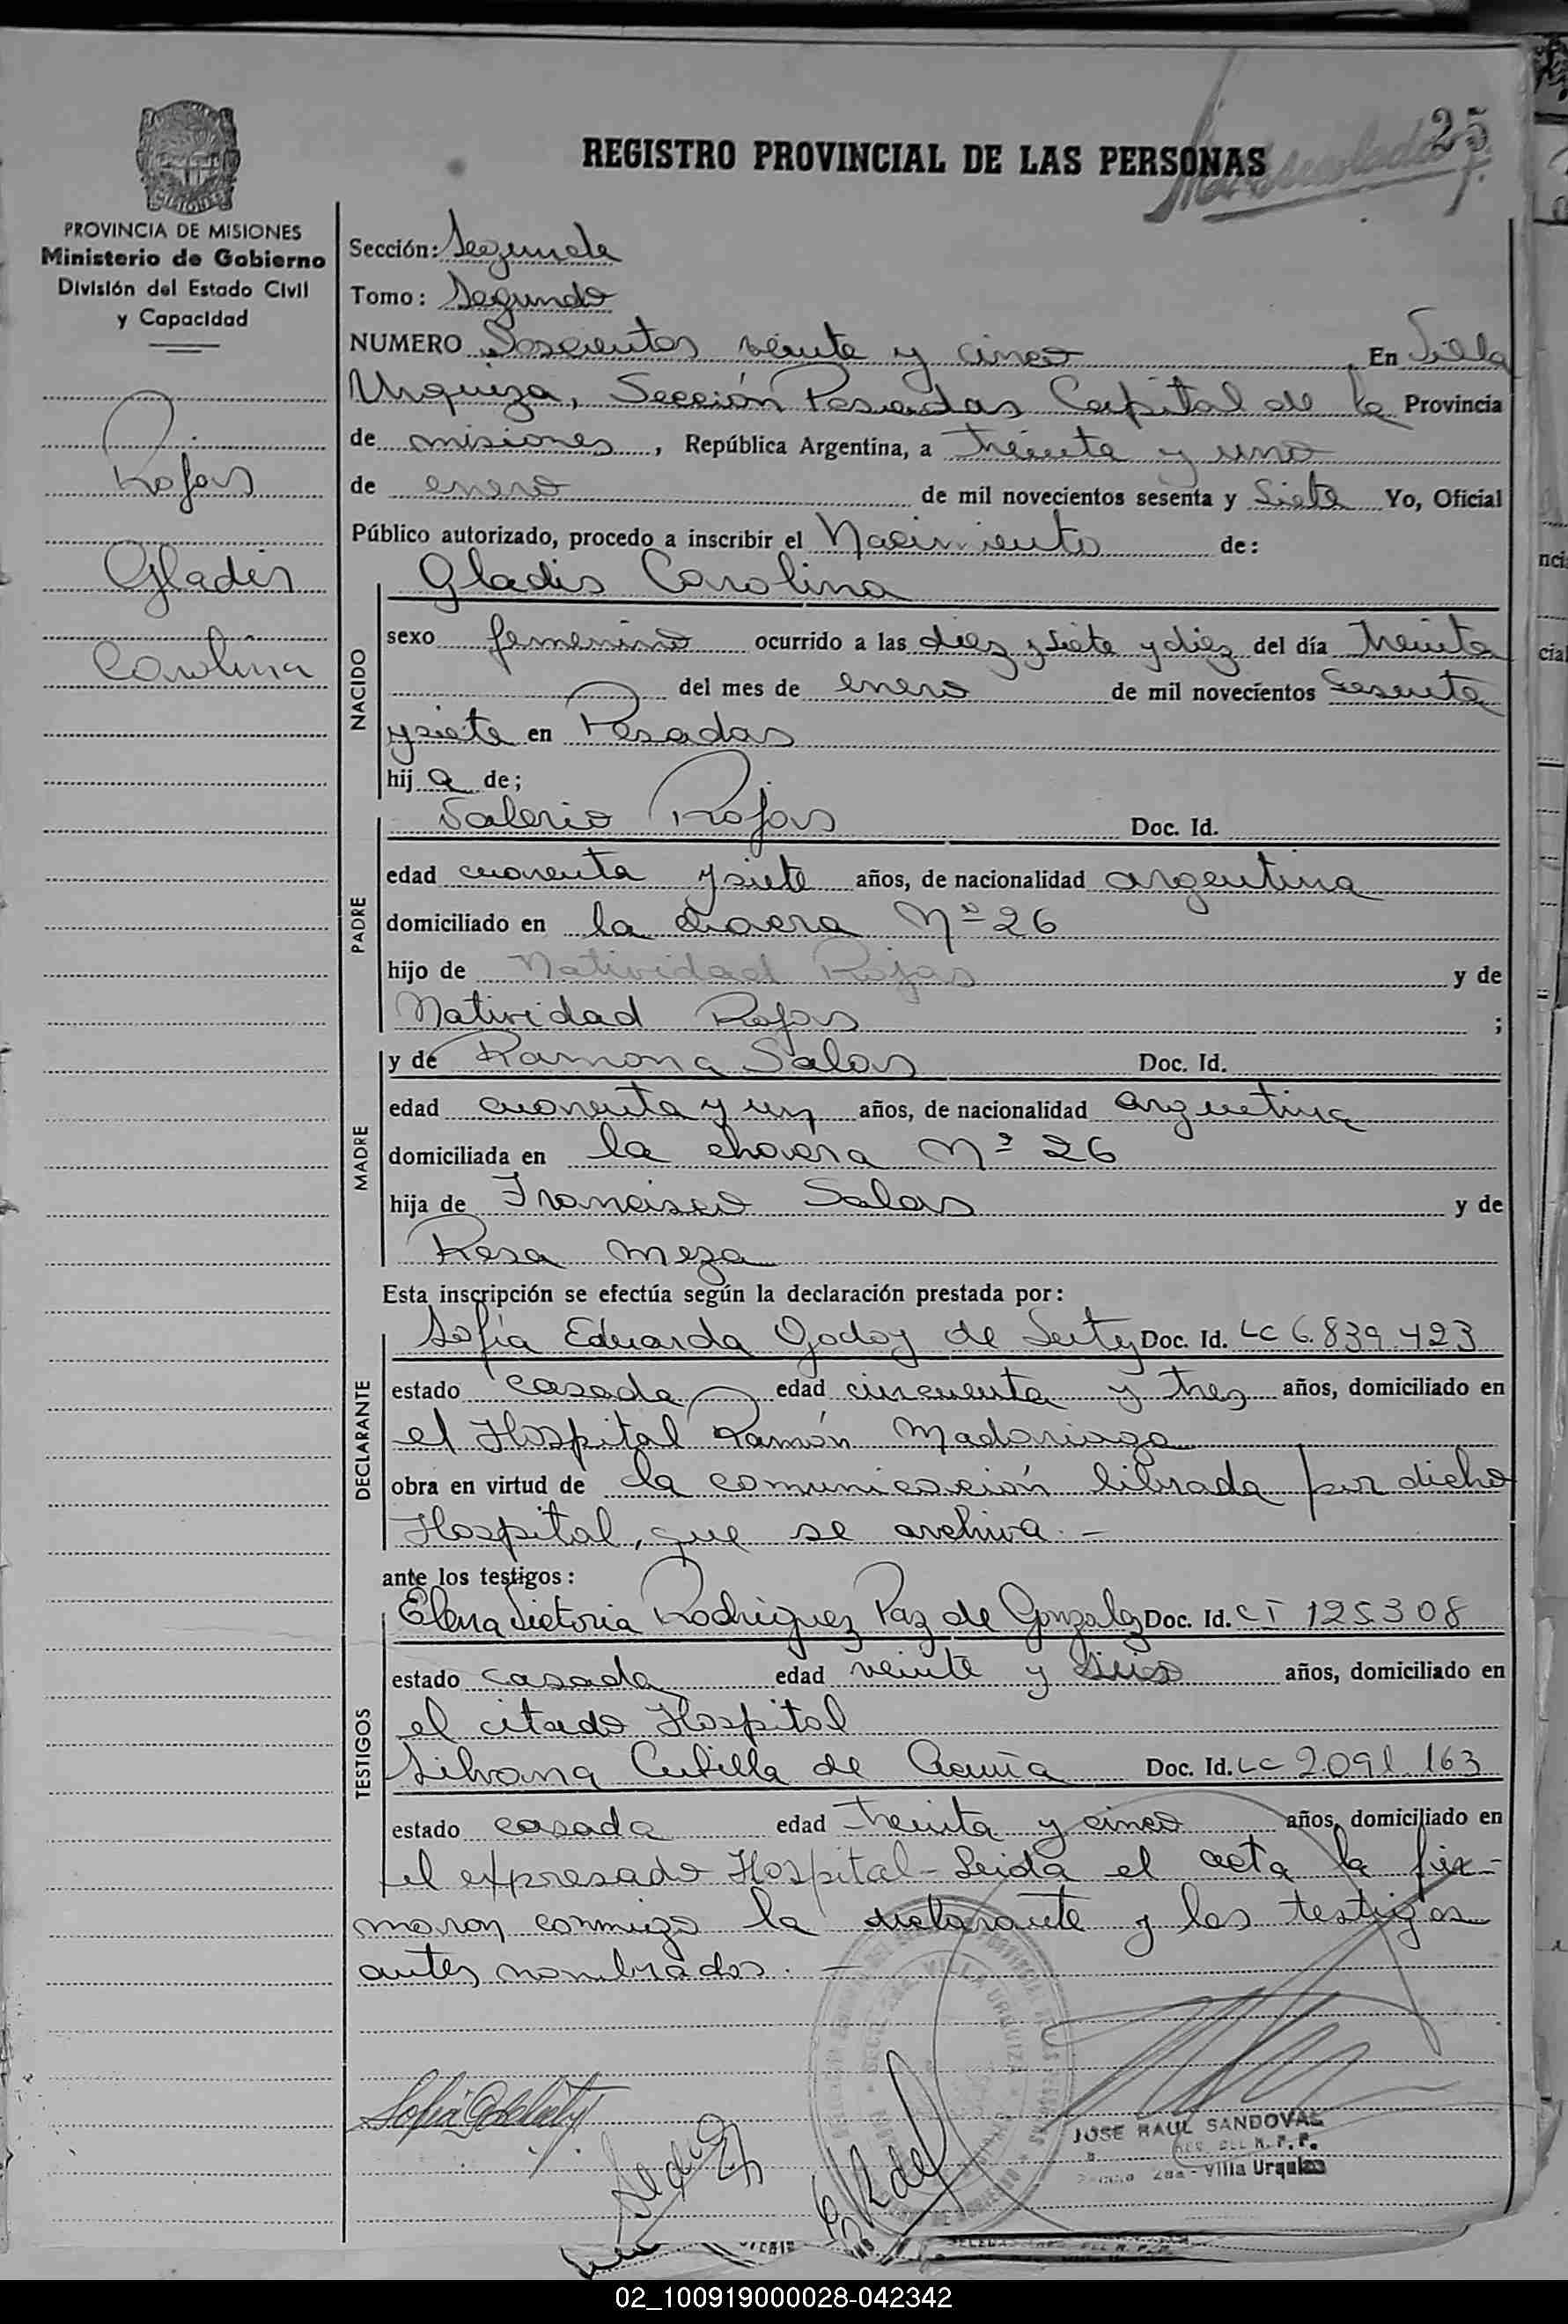 25
REGISTRO PROVINCIAL DE LAS PERSONAS
PROVINCIA DE MISIONES
Ministerio de Gobierno
División del Estado Civil
y Capacidad
Rojas
Gladis
Carolina
Sección: Segunda
Tomo: Segundo
NUMERO Doscientos veinte y cinco En Villa
Urquiza, Sección Posadas Capital de la Provincia
de misiones, República Argentina, a treinta y uno
de enero de mil novecientos sesenta y Siete Yo, Oficial
Público autorizado, procedo a inscribir el Nacimiento de:
NACIDO
Gladis Carolina
sexo femenino ocurrido a las diez y siete y diez del día treinta
del mes de enero de mil novecientos Sesenta
y siete en Posadas
hij a de;
PADRE
Valerio Rojas Doc. Id.
edad cuarenta y siete años, de nacionalidad argentina
domiciliado en la chacra Nº 26
hijo de Natividad Rojas y de
Natividad Rojas ;
MADRE
y de Ramona Salas Doc. Id.
edad cuarenta y un años, de nacionalidad argentina
domiciliada en la chacra Nº 26
hija de Francisco Salas y de
Rosa meza
Esta inscripción se efectúa según la declaración prestada por:
DECLARANTE
Sofía Eduarda Godoy de Doc. Id. LC 6.839.423
estado casada edad cincuenta y tres años, domiciliado en
el Hospital Ramón Madariaga
obra en virtud de la comunicación librada por dicho
Hospital, que se archiva.-
ante los testigos:
TESTIGOS
Elena Victoria Rodriguez Paz de Gonzalez Doc. Id. CI 125308
estado casada edad veinte y años, domiciliado en
el citado Hospital
Silvana Cubilla de Acuña Doc. Id. LC 2.091.163
estado casada edad treinta y cinco años, domiciliado en
el expresado Hospital - Leida el acta la fir-
maron conmigo la declarante y los testigos
antes nombrados. -
JOSE RAUL SANDOVAL
Villa Urquiza
02_100919000028-042342